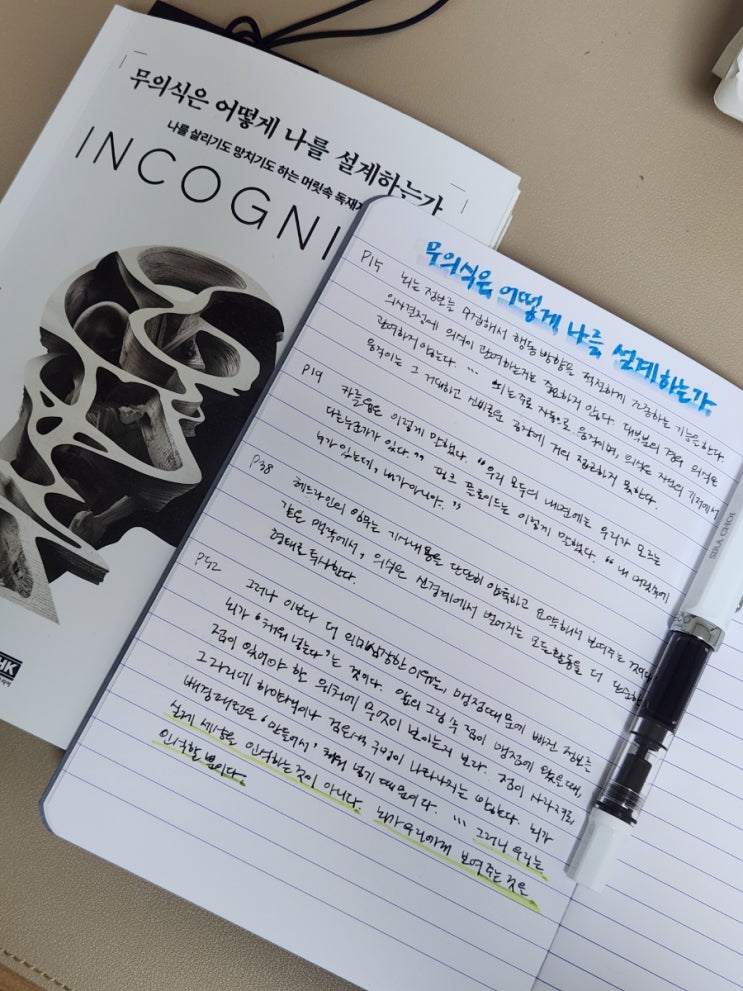 무의식은 어떻게 나를 설계하는가
나를 살리기도 망치기도 하는 머릿속 독재
INCOGNI
HK
무의식은 어떻게 나를 설계하는가
P15 뇌는 정보를 수집해서 행동 방향을 적절하게 조종하는 기능을 한다.
의사결정에 의식이 관여하는지는 중요하지 않다. 대부분의 경우 의식은
관여하지 않는다. … 뇌는 주로 자동으로 움직이며, 의식은 자신의 기저에서
움직이는 그 거대하고 신비로운 공장에 거의 접근하지 못한다.
P19 카를 융은 이렇게 말했다. "우리 모두의 내면에는 우리가 모르는
다른 누군가가 있다." 핑크 플로이드는 이렇게 말했다. "내 머릿속에
누가 있는데, 내가 아니야."
P38 헤드라인의 임무는 기사내용을 단단히 압축하고 요약해서 보여주는 것이다.
같은 맥락에서, 의식은 신경계에서 벌어지는 모든 활동을 더 단순한
형태로 투사한다.
P52 그러나 이보다 더 의미심장한 이유는 맹점때문에 빠진 정보를
뇌가 '채워 넣는다'는 것이다. 앞의 그림 속 점이 맹점에 왔을 때,
점이 있어야 할 위치에 무엇이 보이는지 보라. 점이 사라져도
그 자리에 하얀색이나 검은색 구멍이 나타나지는 않는다. 뇌가
배경패턴을 '만들어서' 채워 넣기 때문이다. … 그러니 우리는
실제 세상을 인식하는 것이 아니다. 뇌가 우리에게 보여주는 것을
인식할 뿐이다.
SIRA CHOI